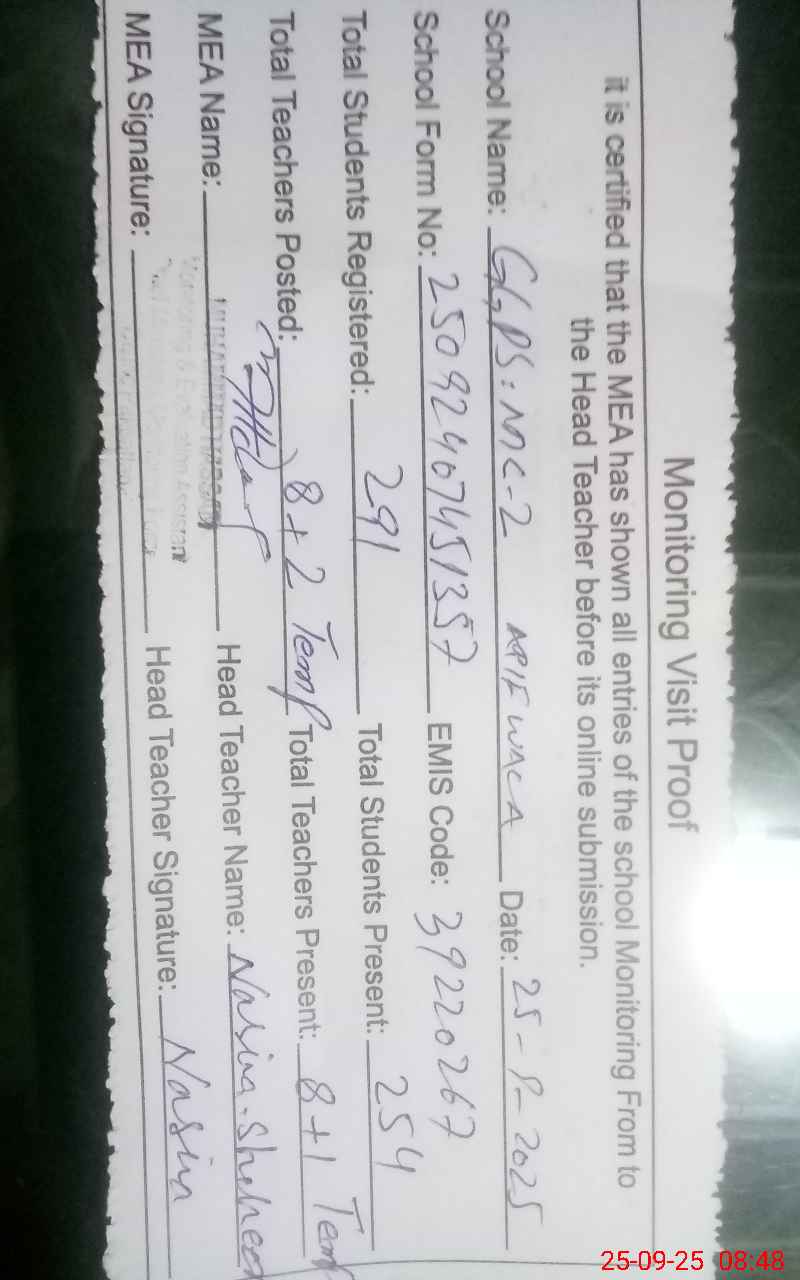 Monitoring Visit Proof
it is certified that the MEA has shown all entries of the school Monitoring From to
the Head Teacher before its online submission.
School Name: GGPS: MC-2 ARIFWALA Date: 25-9-2025
School Form No: 25092407451357 EMIS Code: 39220267
Total Students Registered: 291 Total Students Present: 254
Total Teachers Posted: 8+2 Temp Total Teachers Present: 8+1 Temp
MEA Name: Head Teacher Name: Nasira Shaheen
Monitoring & Evaluation Assistant
MEA Signature: Head Teacher Signature: Nasira
25-09-25 08:48